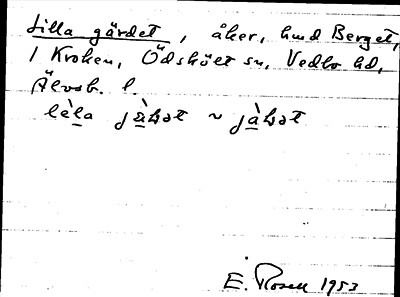 Lilla gärdet, åker, hmd Berget,
1 Kroken, Ödskölt sn, Vedbo hd,
Älvsb. l.
E. Rosell 1953